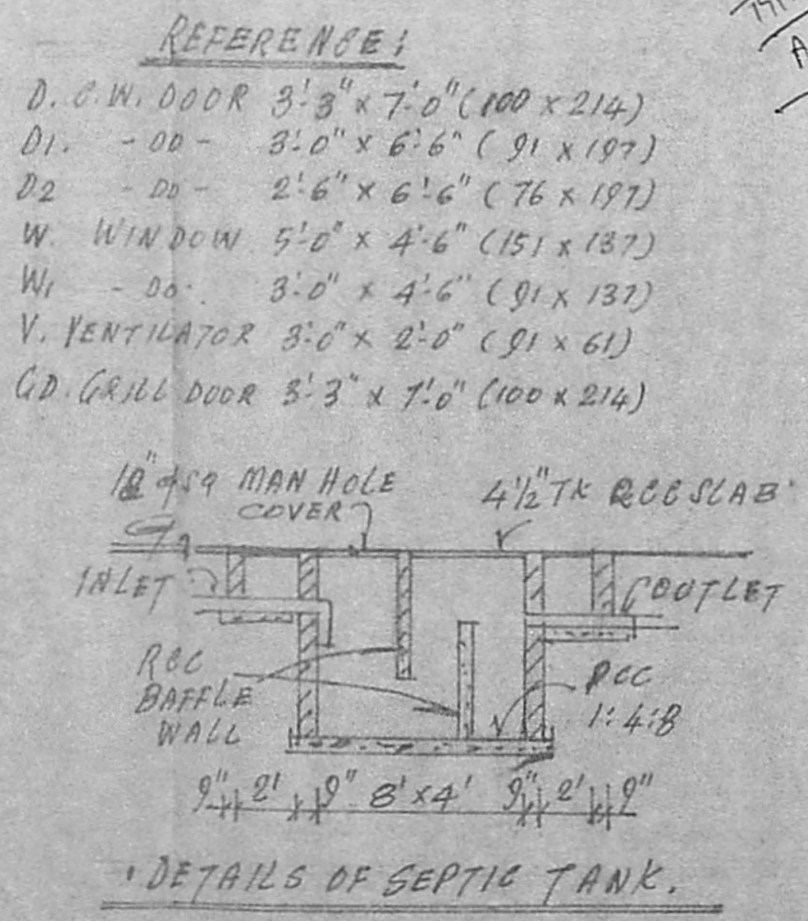 REFERENCE:
D. C.W. DOOR 3'-3" x 7'-0" (100 x 214)
D1. - DO - 3'-0" x 6'-6" (91 x 197)
D2 - DO - 2'-6" x 6'-6" (76 x 197)
W. WINDOW 5'-0" x 4'-6" (151 x 137)
W1 - DO - 3'-0" x 4'-6" (91 x 137)
V. VENTILATOR 3'-0" x 2'-0" (91 x 61)
GD. GRILL DOOR 3'-3" x 7'-0" (100 x 214)
SQ MAN HOLE
COVER
4½" TK RCC SLAB
INLET
OUTLET
RCC
BAFFLE
WALL
PCC
1:4:8
9" 2' 9" 8'x4' 9" 2' 9"
DETAILS OF SEPTIC TANK.